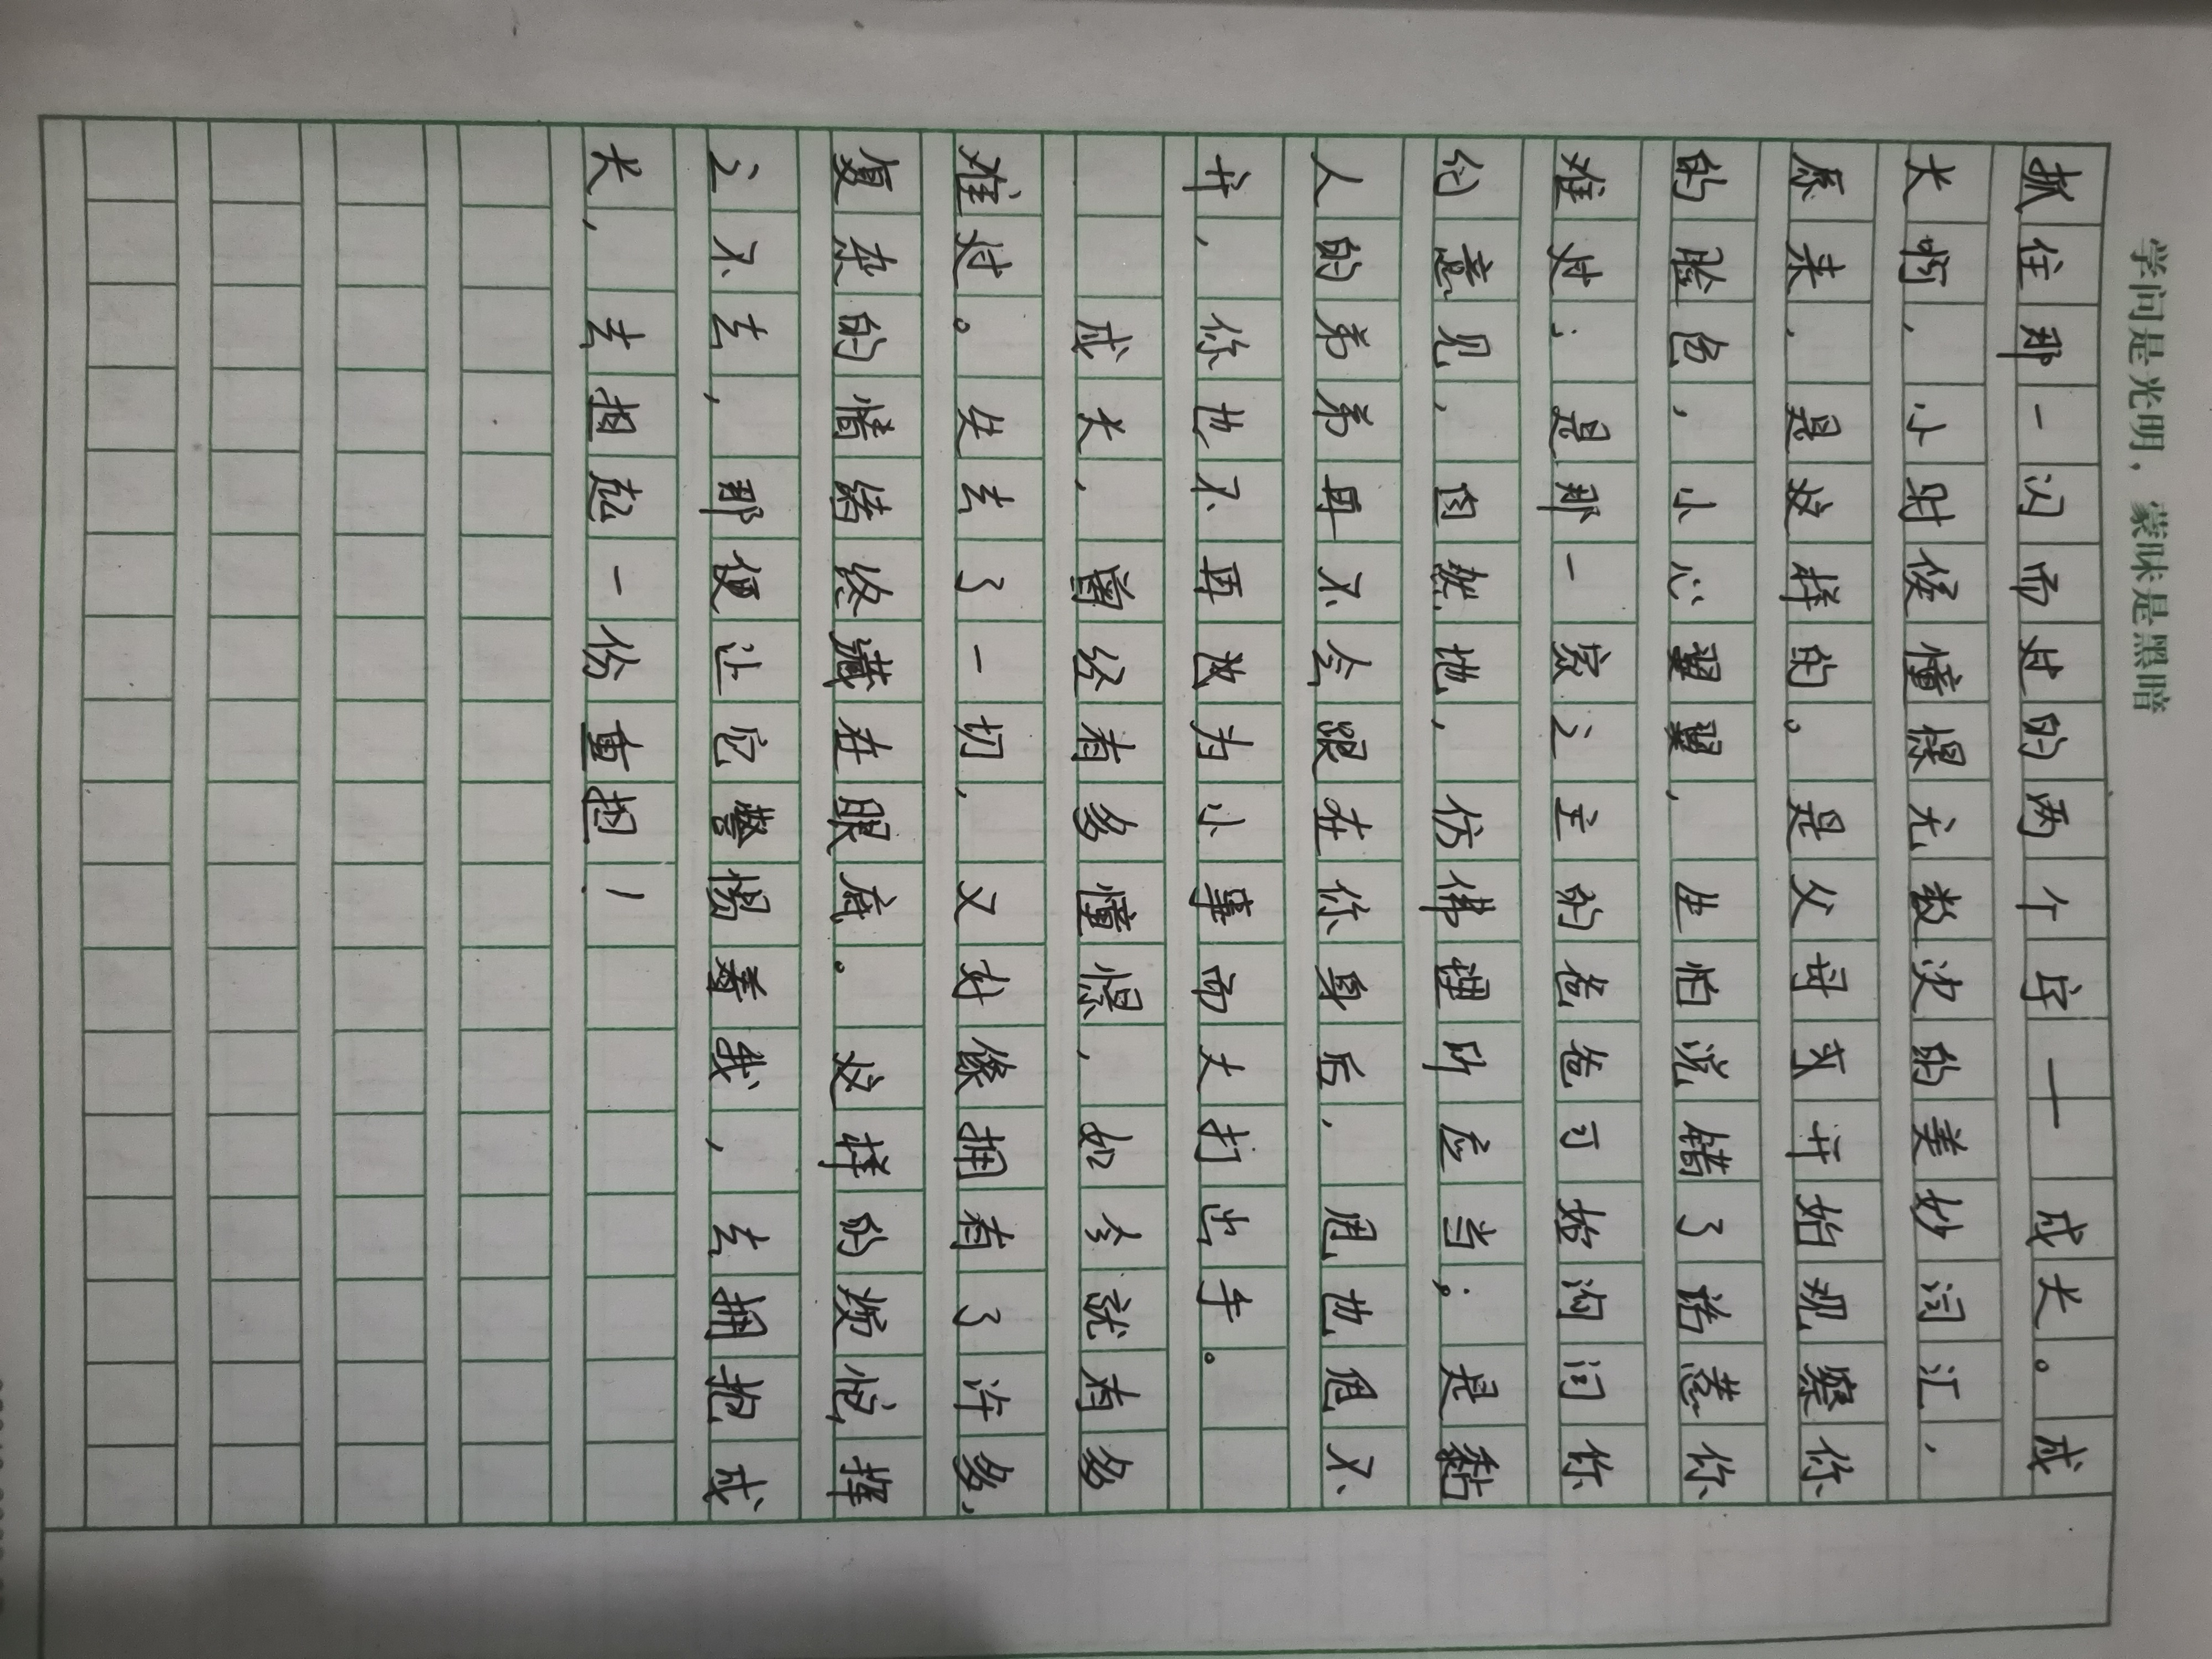 学问是光明，蒙昧是黑暗
抓住那一闪而过的两个字——成长。成
长啊，小时候憧憬无数次的美妙词汇，
原来，是这样的。是父母或开始观察你
的脸色，小心翼翼，生怕说错了话惹你
难过；是那一家之主的爸爸可始询问你
的意见，自然地，仿佛理所应当；是黏
人的弟弟再不会跟在你身后，甩也甩不
开，你也不再教为小事而大打出手。
成长，曾经有多憧憬，如今就有多
难过。失去了一切，又好像拥有了许多，
复杂的情绪终藏在眼底。这样的烦恼挥
之不去，那便让它警惕着我，去拥抱成
长，去担起一份重担！